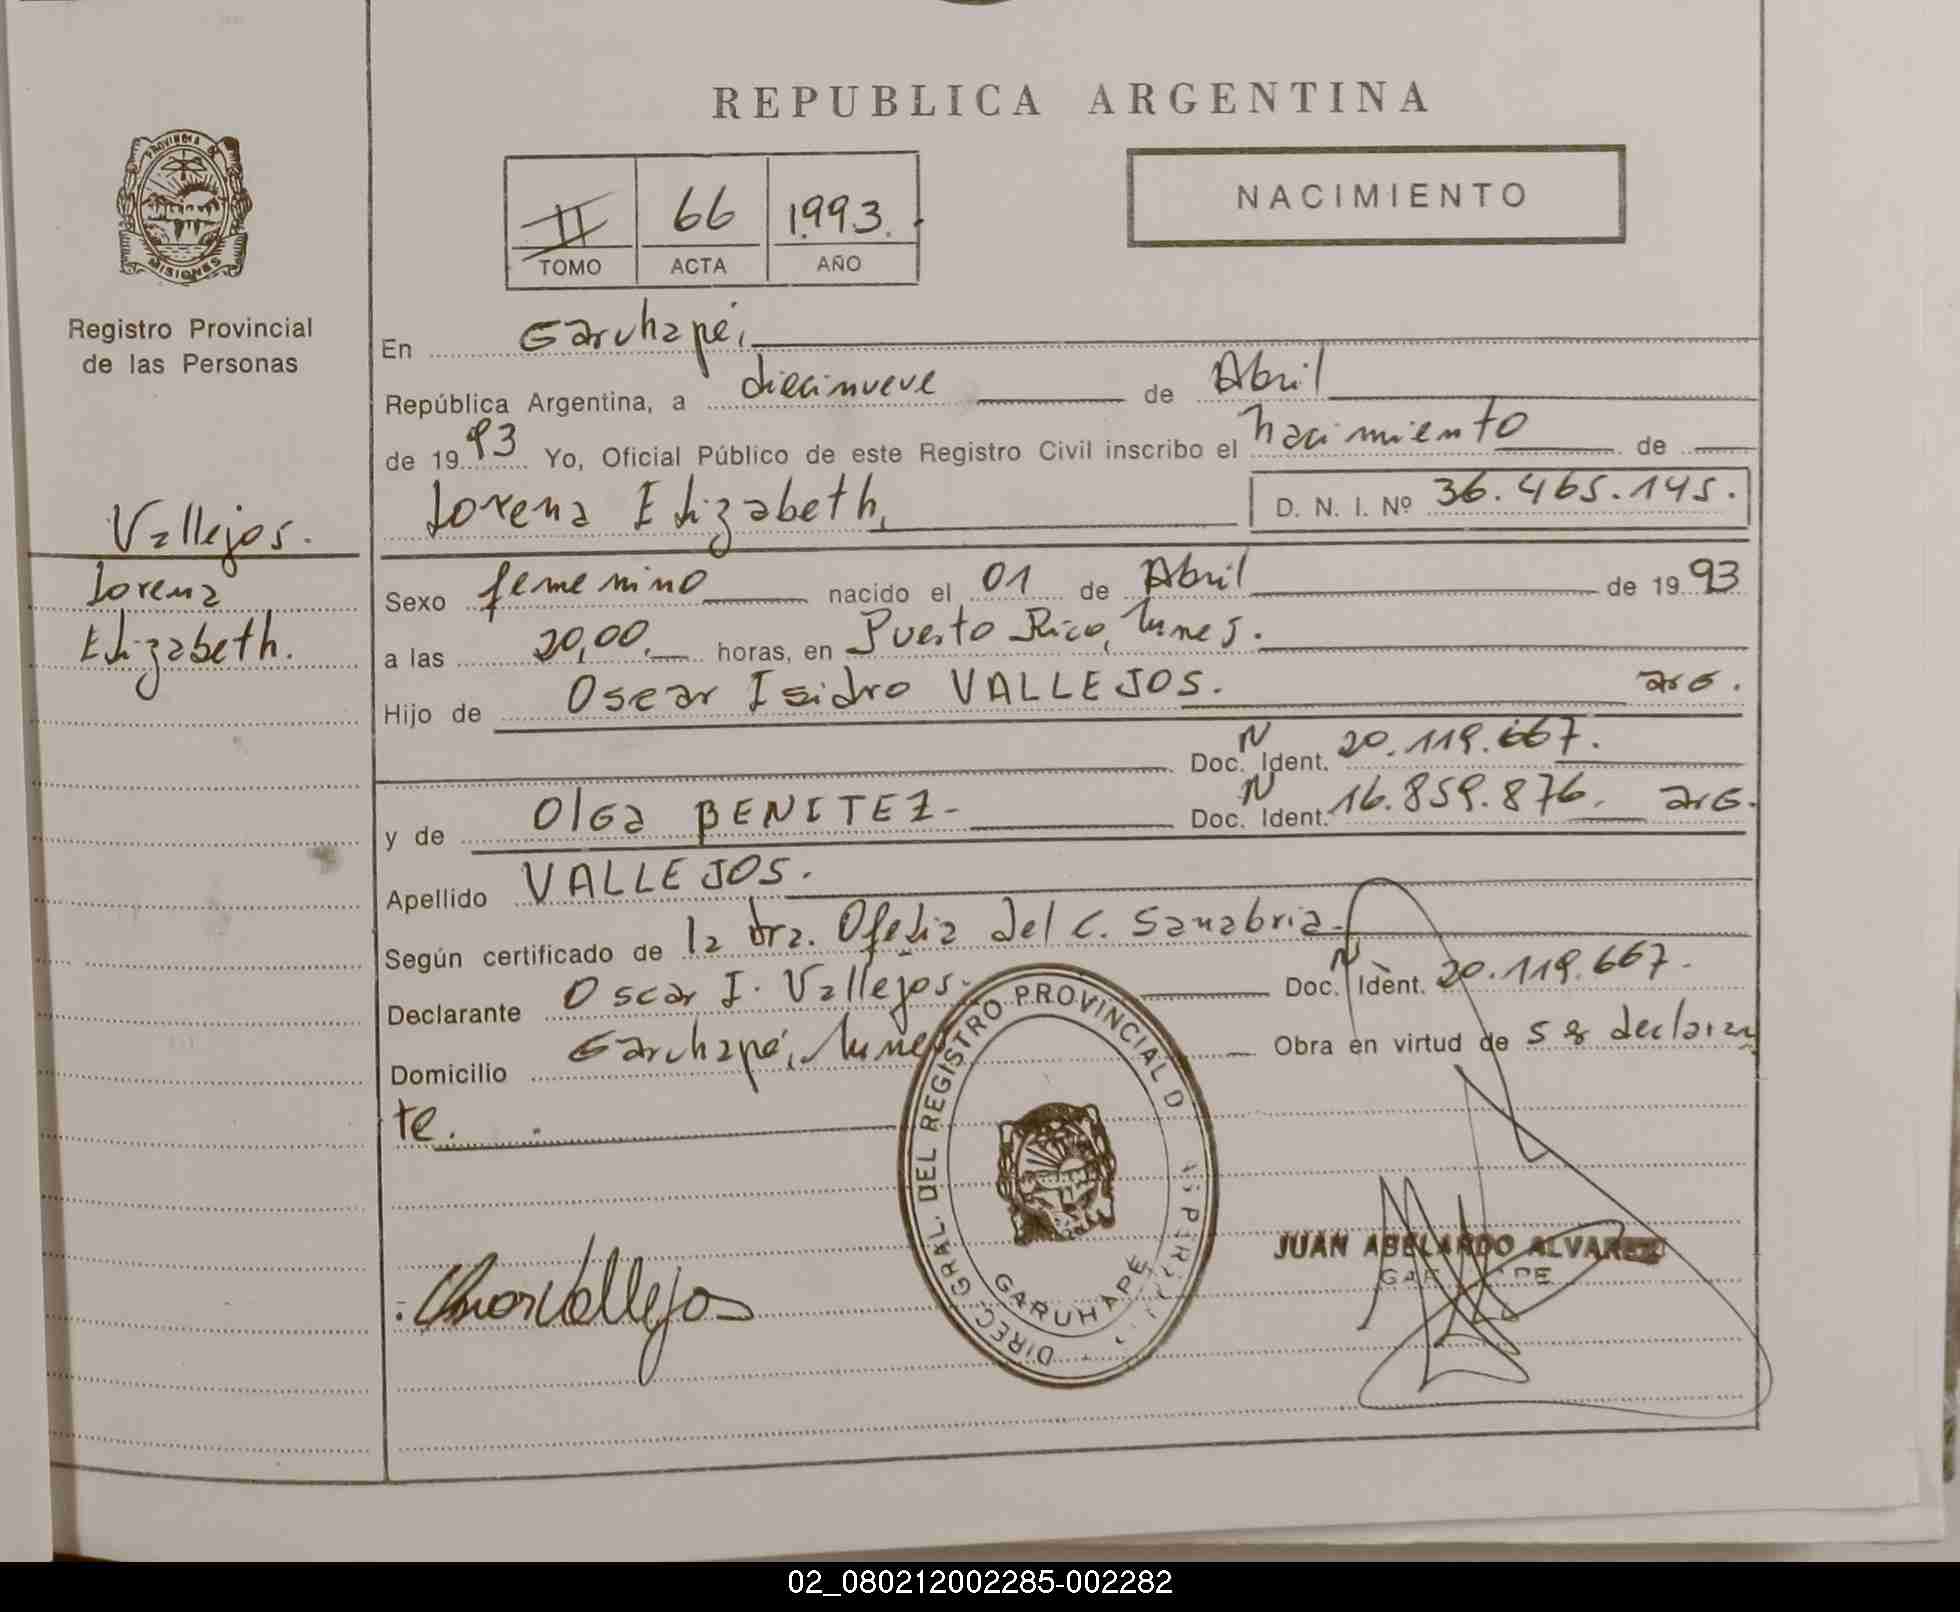 REPUBLICA ARGENTINA
NACIMIENTO
II 66 1993.
TOMO ACTA AÑO
PROVINCIA DE MISIONES
Registro Provincial
de las Personas
Vallejos.
Lorena
Elizabeth.
En Garuhapé,
República Argentina, a diecinueve de Abril
de 1993 Yo, Oficial Público de este Registro Civil inscribo el nacimiento de
Lorena Elizabeth, D. N. I. Nº 36.465.145.
Sexo femenino nacido el 01 de Abril de 1993
a las 20,00. horas, en Puerto Rico, Mnes.
Hijo de Oscar Isidro VALLEJOS. arG.
Doc. N Ident. 20.119.667.
y de Olga BENITEZ- Doc. N Ident. 16.859.876. arG.
Apellido VALLEJOS.
Según certificado de la dra. Ofelia del C. Sanabria-
Declarante Oscar I. Vallejos. Doc. N Ident. 20.119.667.
Domicilio Garuhapé, Mnes Obra en virtud de ser declaran
te.
DIREC. GRAL. DEL REGISTRO PROVINCIAL D
GARUHAPE
Vallejos
JUAN ABELARDO ALVAREZ
02_080212002285-002282